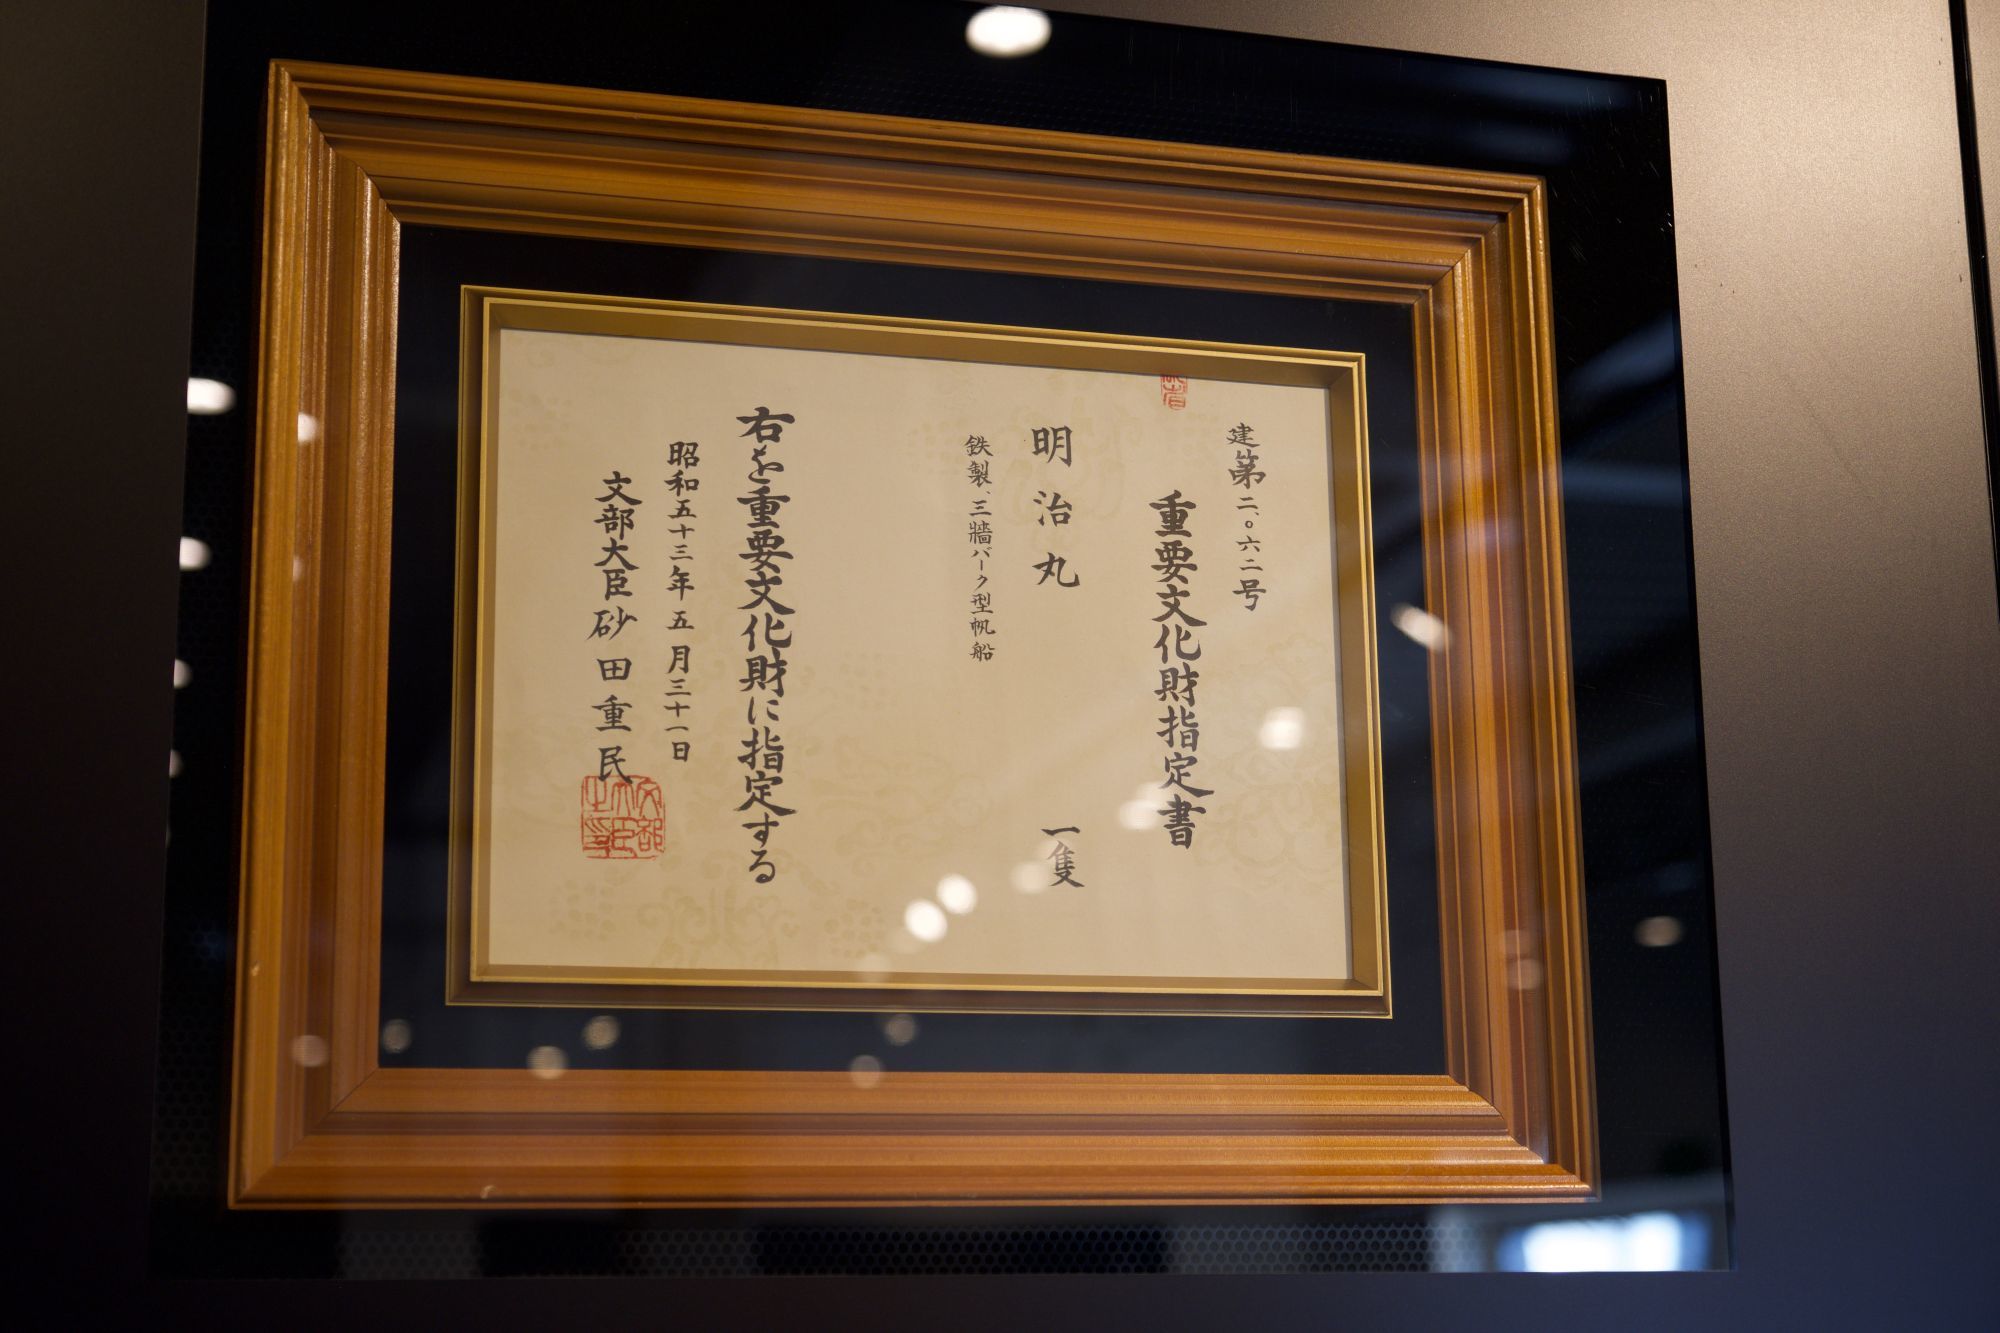 建第二、〇六二号
重要文化財指定書
明治丸 一隻
鉄製、三檣バーク型帆船
右を重要文化財に指定する
昭和五十三年五月三十一日
文部大臣 砂田重民
文部大臣之印